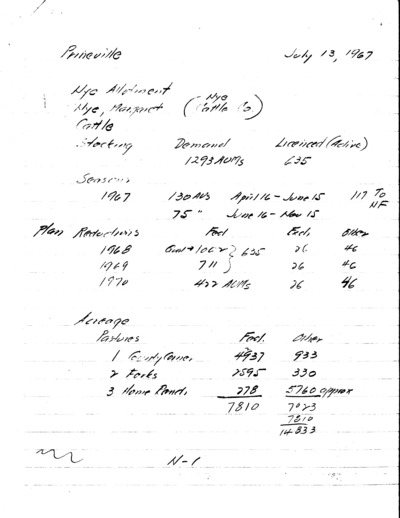 Prineville July 13, 1967
Nye Allotment
Nye, Margaret (Nye Cattle Co.)
Cattle
Stocking Demand Licensed (Active)
1293 AUMs 635
Season
1967 130 AUs April 16 - June 15 117 To NF
75 " June 16 - Nov 15
Plan Reductions Fed Exch. Other
1968 635 26 46
1969 711 26 46
1970 422 AUMs 26 46
Acreage
Pastures Fed. Other
1 4937 933
2 Forks 2595 330
3 Home Ranch 278 5760 approx
7810 7023
7810
14833
N-1